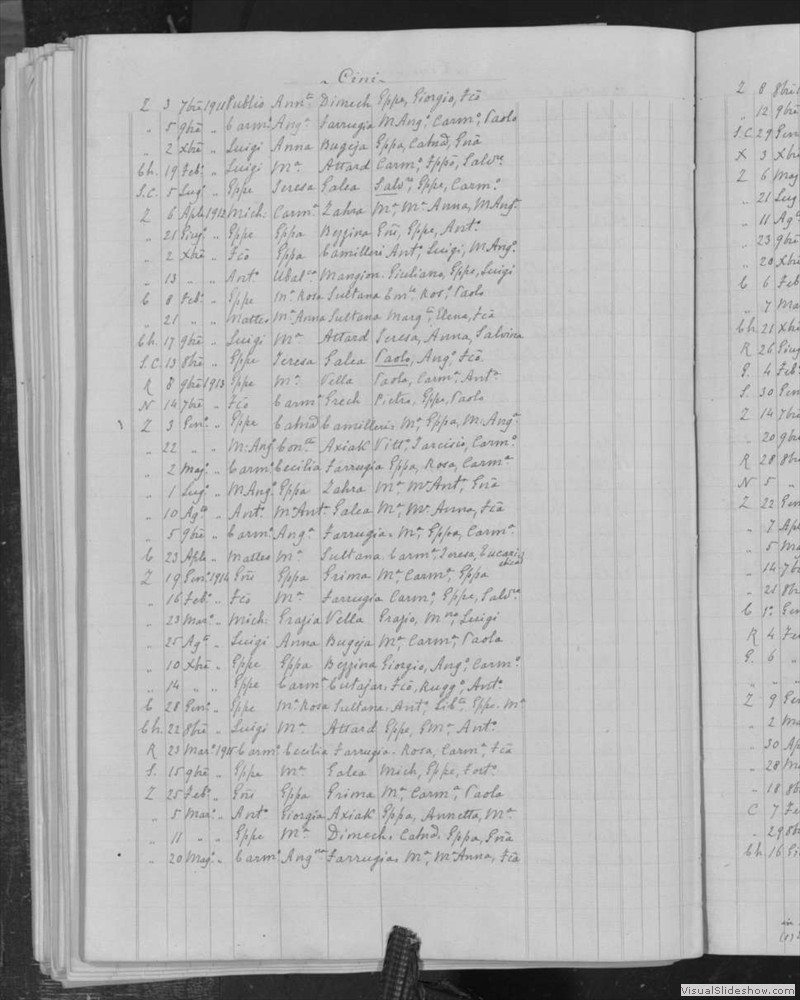 ~ Cini ~
Z 3 7bre 1911 Publio Annta Dimech Gppe, Giorgio, Fcō
„ 5 9bre „ Carmo Anga Farrugia M Anga, Carmo, Paolo
„ 2 Xbre „ Luigi Anna Bugeja Gppa, Catnd, Gnā
Ch. 19 Febo „ Luigi Ma Attard Carmo, Salvre
S.C. 5 Lugo „ Gppe Teresa Galea Salvre, Gppe, Carmo
Z 6 Aple 1912 Mich. Carma Zahra Ma, Ma Anna, M Anga
„ 21 Giugo „ Gppe Gppa Bezzina Gnī, Gppe, Anto
„ 2 Xbre „ Fcō Gppa Camilleri Anto, Luigi, M Ango
„ 13 „ „ Anto Mangion. Giuliano, Gppe, Luigi
C 8 Febo „ Gppe Ma Rosa Sultana Paolo
„ 21 „ „ Matteo Ma Anna Sultana Margta, Elena, Fcā
Ch. 17 9bre „ Luigi Ma Attard Teresa, Anna, Salvina
S.C. 13 8bre „ Gppe Teresa Galea Paolo, Ango Fcō.
R 8 9bre 1913 Gppe Ma Vella Paola, Carma, Anta
N 14 7bre „ Fcō Carma Grech Pietro, Gppe, Paolo
Z 3 Geno „ Gppe Catnd Camilleri. Ma, Gppa, M. Anga
„ 22 „ „ M. Ango Conta Axiak Vitto, Tarcisio, Carmo
„ 2 Mago „ Carmo Cecilia Farrugia Gppa, Rosa, Carma
„ 1 Lugo „ M Ango Gppa Zahra Ma, Ma Anta, Gnā
„ 10 Agto „ Anto Ma Anta Galea Ma, Ma Anna, Fcā
„ 5 9bre „ Carmo Anga Farrugia. Ma, Gppa, Carma
C 23 Aple „ Matteo Ma Sultana. Carma, Teresa, Eucaris
tica
Z 19 Geno 1914 Gnī Gppa Grima Ma, Carma, Gppa
„ 16 Febo „ Fcō Ma Farrugia Carmo, Gppe, Salvre
„ 23 Maro „ Mich. Grazia Vella Grazio, Luigi
„ 25 Agto „ Luigi Anna Bugeja Ma, Carma, Paola
„ 10 Xbre „ Gppe Gppa Bezzina Giorgio, Ango, Carmo
„ 14 „ „ Gppe Carma Cutajar. Fcō, Ruggo, Anto
C 28 Geno „ Gppe Ma Rosa Sultana. Anta, Gppa. Ma
Ch. 22 8bre „ Luigi Ma Attard Gppe, Anto
R 23 Maro 1915 Carmo Cecilia Farrugia. Rosa, Carma, Fcā
S. 15 9bre „ Gppe Ma Galea Mich, Gppe, Forto
Z 25 Febo „ Gnī Gppa Grima Ma, Carma, Paola
„ 5 Maro „ Anto Giorgia Axiak Gppa, Annetta, Ma
„ 11 „ „ Gppe Ma Dimech. Catnd, Gppa, Gnā
„ 20 Mago „ Carmo Farrugia. Ma, Ma Anna, Fcā
Z 8 8bre
„ 12 9bre
S.C. 29 Gen
X 3 Xbre
Z 6 Mag
„ 21 Lug
„ 11 Ag
„ 23 9bre
„ 20 Xbre
C 6 Feb
„ 7 Ma
Ch. 21 Xbr
R 26 Giug
G. 4 Feb
S. 30 Gen
Z 14 7b
„ 20 9b
R 28 8b
N 5 „
Z 22 Gen
„ 7 Apl
„ 5 Ma
„ 14 7b
„ 21 8b
C 1o Gen
R 4 Fe
G. 6 „
„ „ „
Z 9 Gen
„ 2 Ma
„ 30 Ap
„ 28 Ma
„ 18 8b
C 7 Fe
„ 29 8b
Ch. 16 Gi
VisualSlideshow.com